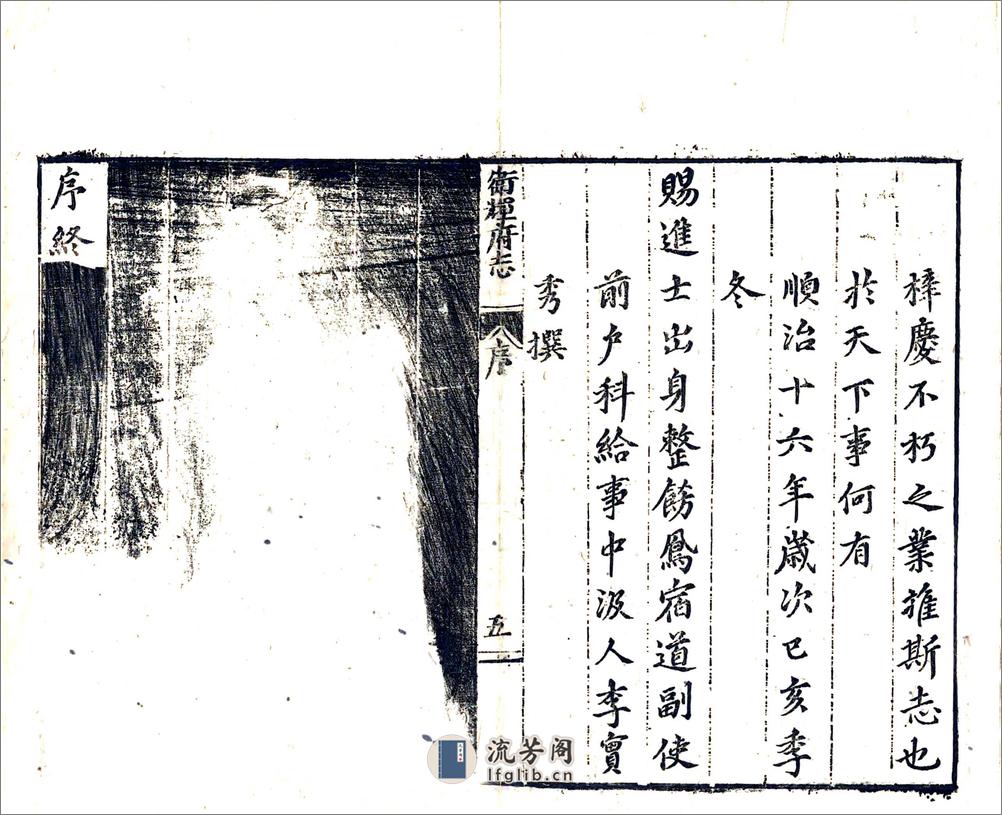 梓慶不朽之業推斯志也
於天下事何有
順治十六年歲次已亥季
冬
賜進士出身整飭鳳宿道副使
前戶科給事中汲人李實
秀撰
衛輝府志
序
五
序終
流芳阁
lfglib.cn